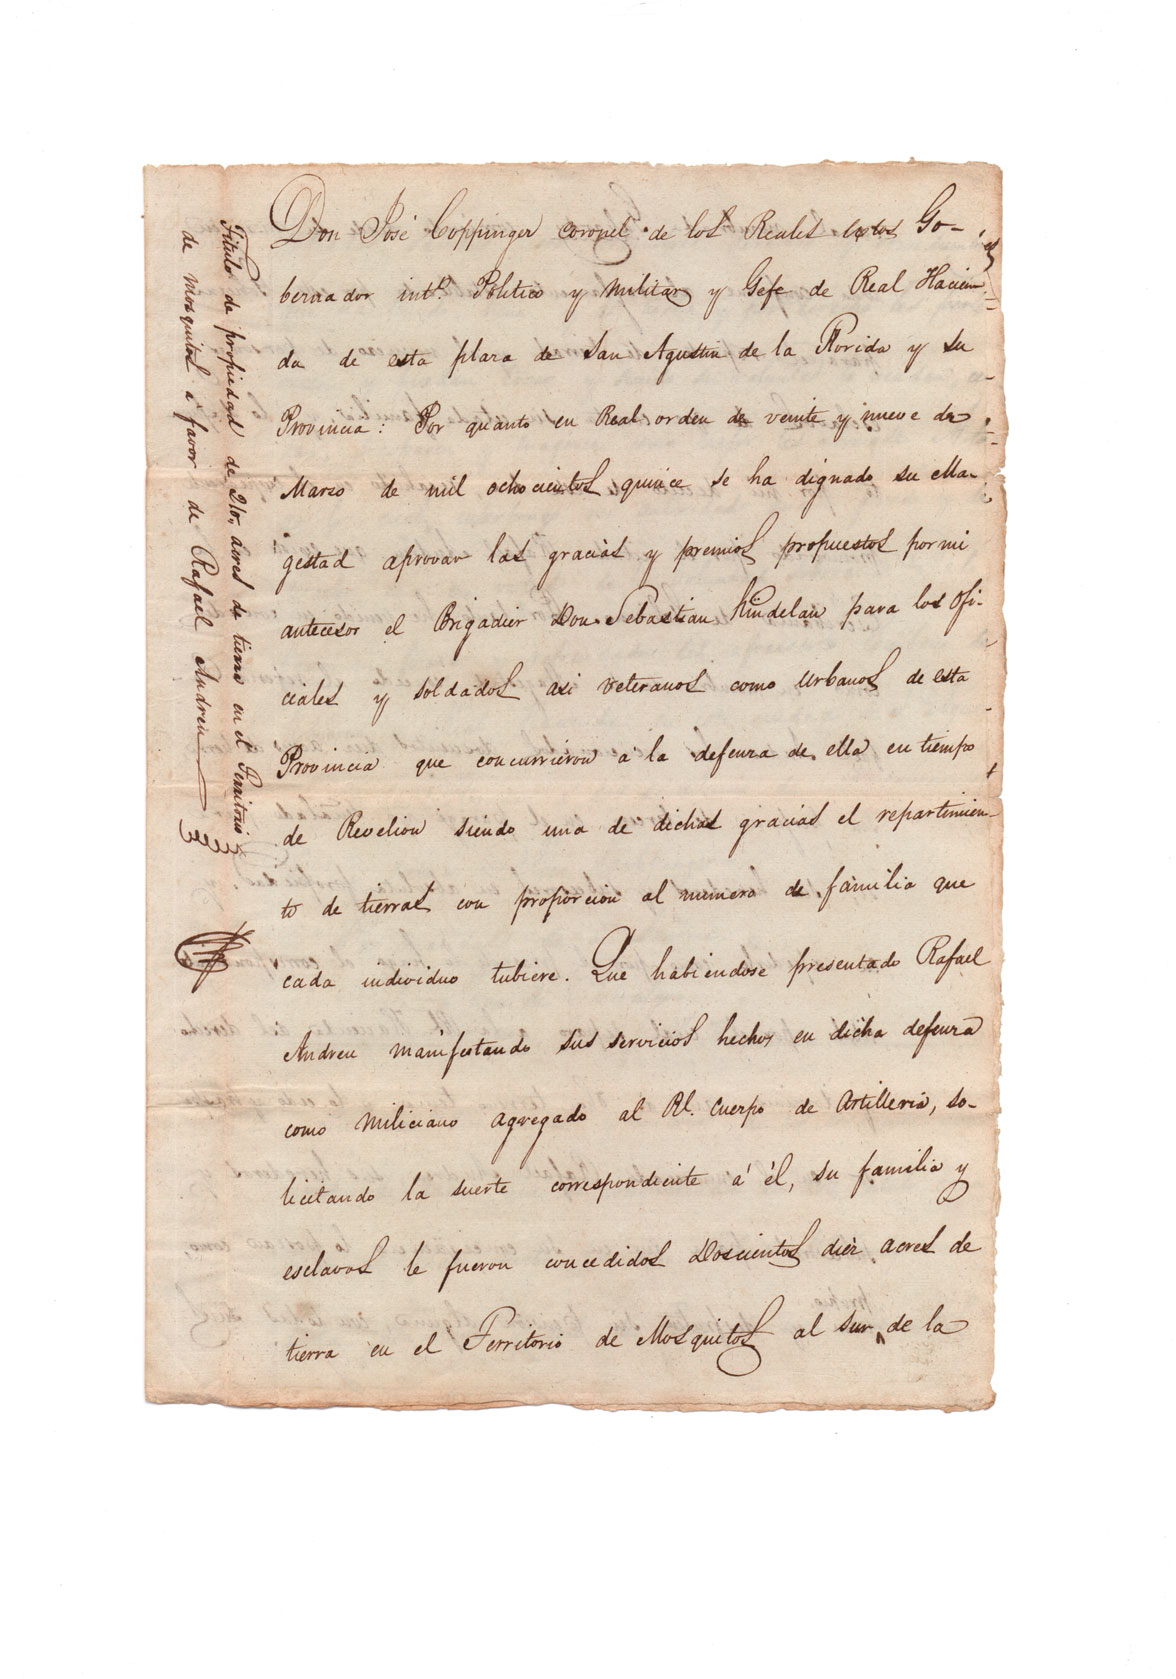 Titulo de propiedad de 210, acres de tierra en el Territorio
de Mosquitos á favor de Rafael Andreu
Don José Coppinger coronel de los Reales Go-
bernador intº. Politico y Militar y Gefe de Real Hacien-
da de esta plaza de San Agustin de la Florida y su
Provincia: Por quanto en Real orden de veinte y nueve de
Marzo de mil ochocientos quince se ha dignado su Ma-
gestad aprovar las gracias y premios propuestos por mi
antecesor el Brigadier Don Sebastian Kindelan para los Ofi-
ciales y soldados asi veteranos como Urbanos de esta
Provincia que concurrieron a la defensa de ella en tiempo
de Revelion siendo una de dichas gracias el repartimien-
to de tierras con proporcion al numero de familia que
cada individuo tubiere. Que habiendose presentado Rafael
Andreu manifestando sus servicios hechos en dicha defensa
como Miliciano agregado al Rl. Cuerpo de Artilleria, so-
licitando la suerte correspondiente á él, su familia y
esclavos le fueron concedidos Doscientos diez acres de
tierra en el Territorio de Mosquitos al sur de la